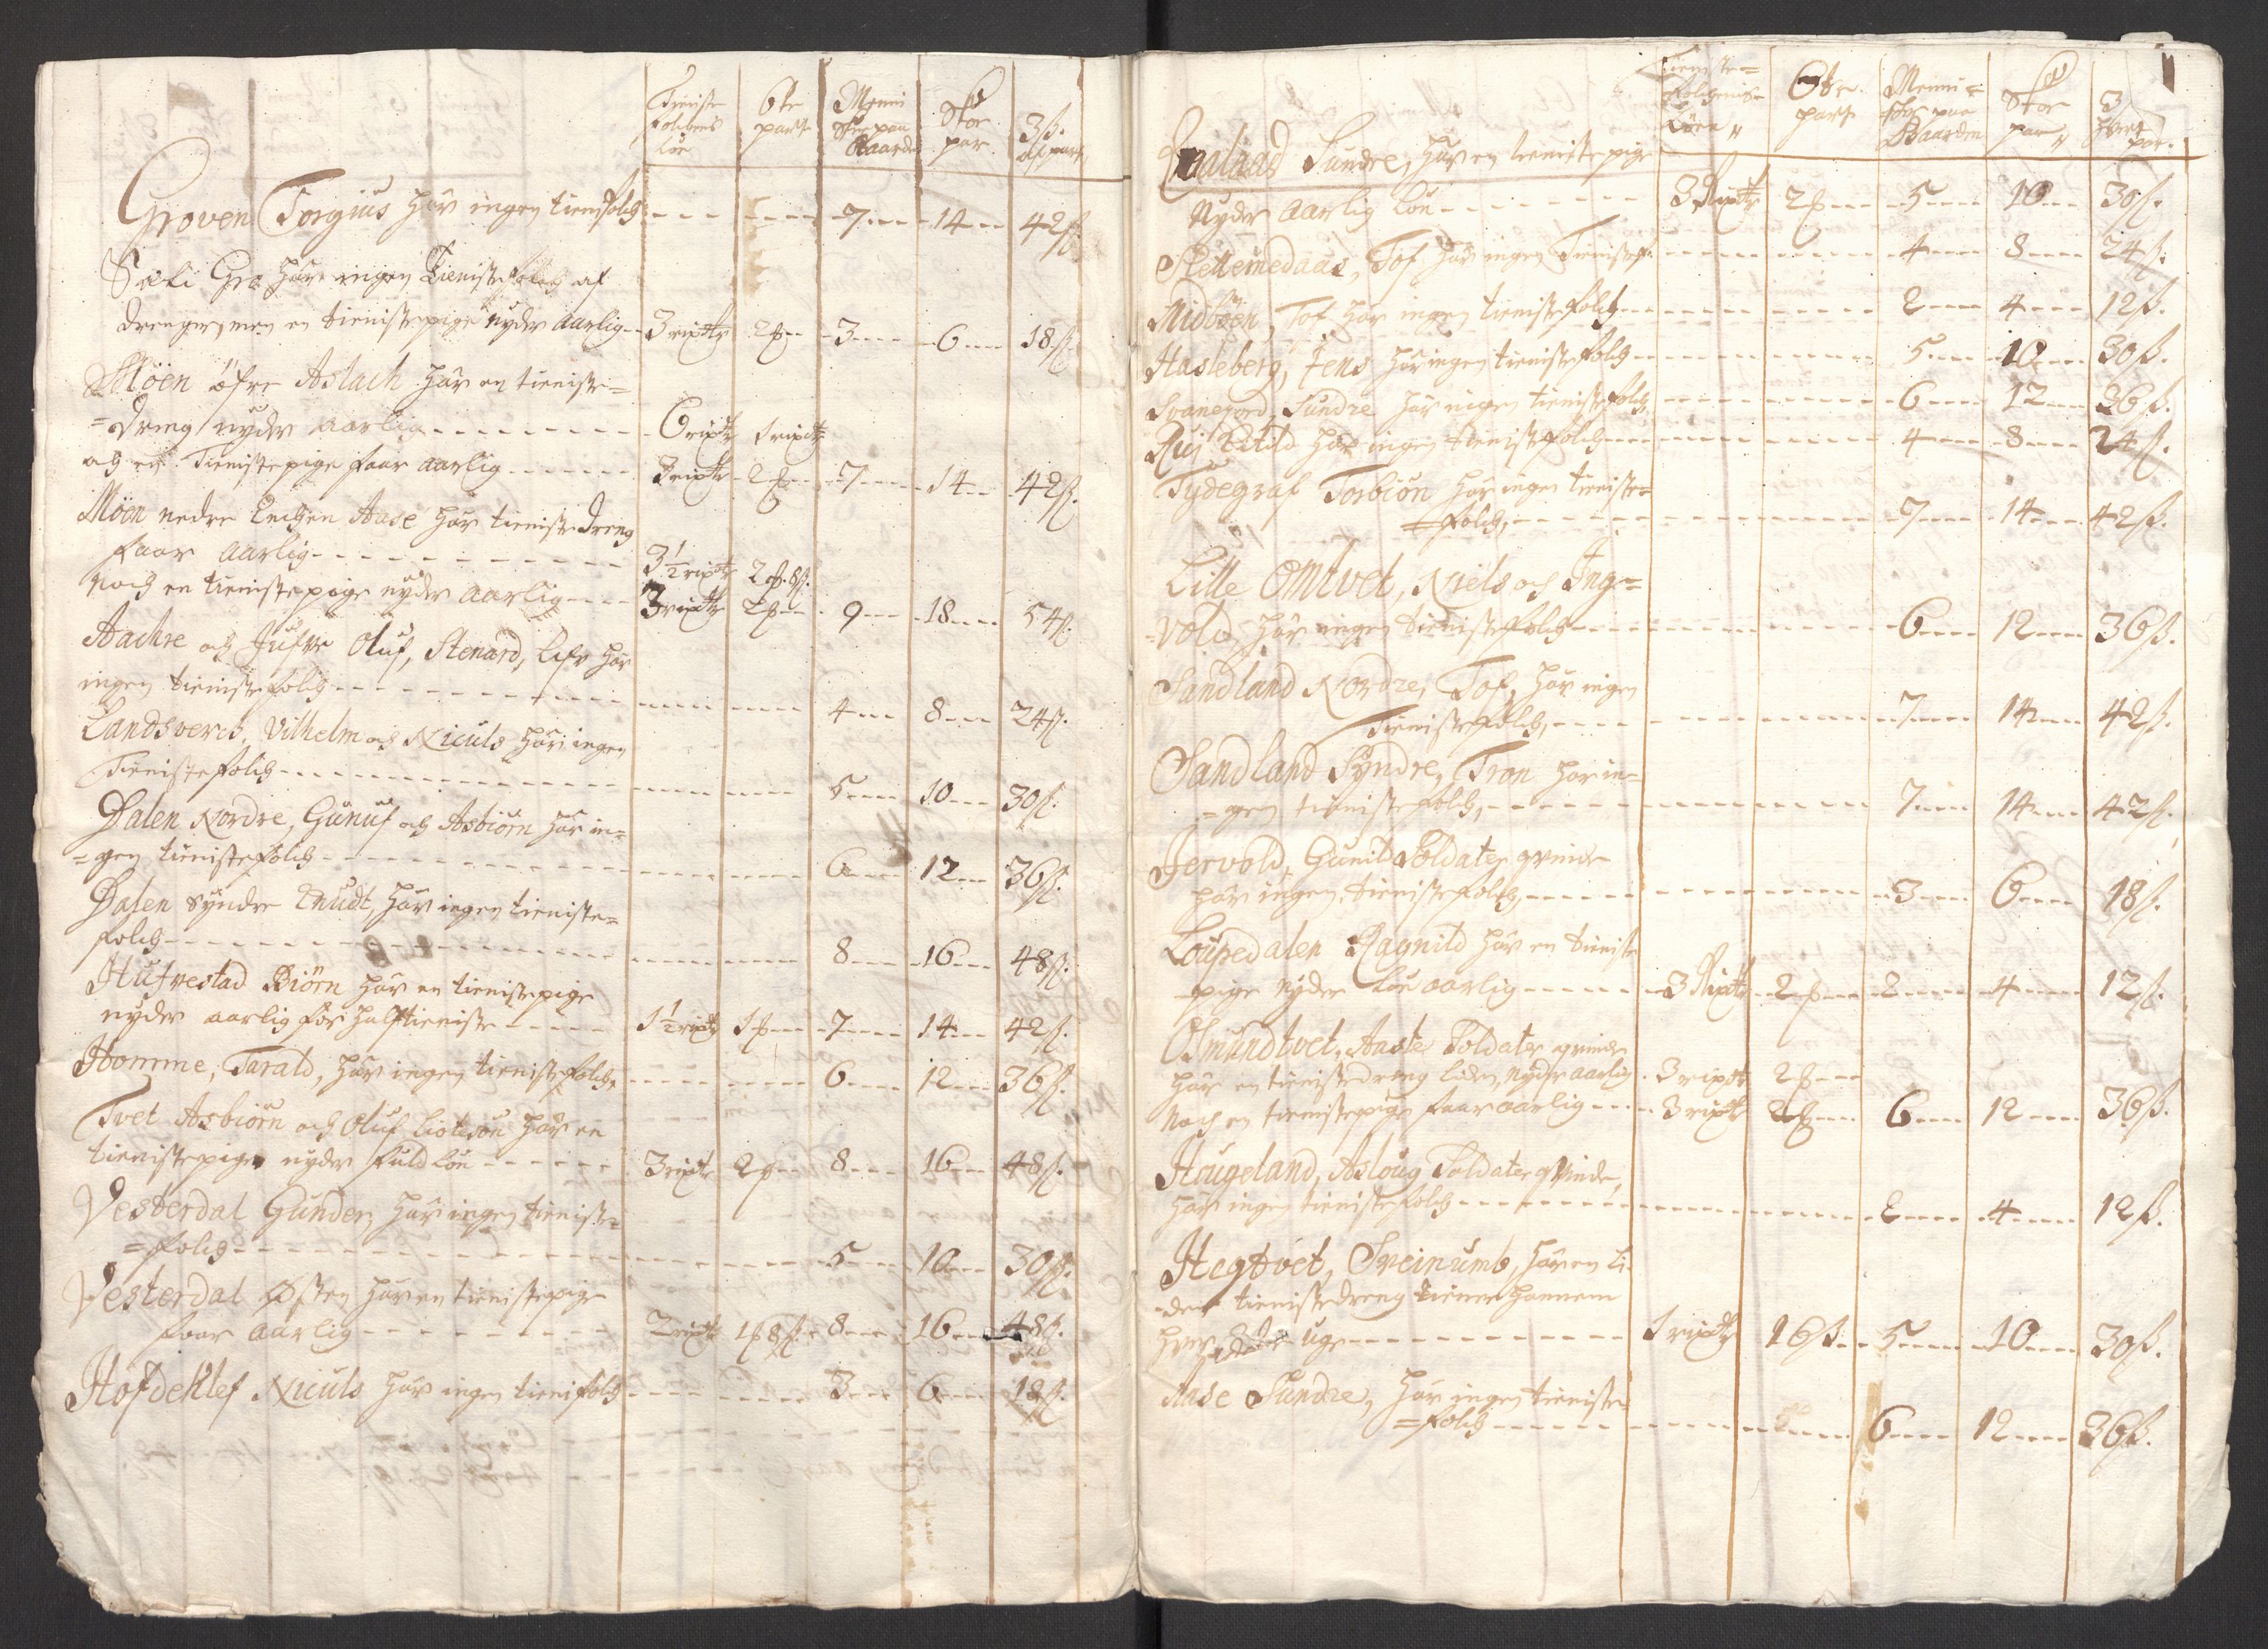 Tieniste Folchens Løn | 6te part | Menni sker paa Gaarden | Skor par | 3 ß. af par
Groven Torgius har ingen tienistfolch --- --- 7 --- 14 --- 42 ß.
Sæli Gro har ingen Tienistefolch af
drenge, men en tienistepige nyder aarlig -- 3 rixdr 2 ₰ -- 3 --- 6 --- 18 ß.
Möen öfre Aslach har en tieniste=
=dreng nyder aarlig --- 6 rixdr 1 rixdr
och en Tienistepige faar aarlig --- 3 rixdr 2 --- 7 --- 14 --- 42 ß.
Möen nedre Enchen Aase har tienistedreng
faar aarlig --- 3 1/2 rixdr 2 . 8 ß.
noch en tienistepige nyder aarlig --- 3 rixdr 2 --- 9 --- 18 --- 54 ß.
Aachre och Jufve Oluf, Stenard, har
ingen tienistefolch --- 4 --- 8 --- 24 ß.
Landsverch, Vilhelm och Niculs har ingen
Tienistefolch --- 5 --- 10 --- 30 ß.
Dalen Nordre, Gunuf och Asbiörn har in=
=gen tienistefolch --- 6 --- 12 --- 36 ß.
Dalen Syndre Knudt, har ingen tieniste=
folch --- 8 --- 16 --- 48 ß.
Hufvestad Biörn har en tienistepige
nyder aarlig for half tieniste --- 1 1/2 rixdr 1 --- 7 --- 14 --- 42 ß.
Homme, Tarald, har ingen tienistefolch --- 6 --- 12 --- 36 ß.
Tvet Asbiörn och Oluf Liotesøn har en
tienistepige nyder fuld løn --- 3 rixdr 2 --- 8 --- 16 --- 48 ß.
Vesterdal Gunder, har ingen tieniste=
=folch --- 5 --- 10 --- 30 ß.
Vesterdal Østen har en tienistepige
faar aarlig --- 2 rixdr 1 8 ß. 8 --- 16 --- 48 ß.
Hofdeklef Niculs har ingen tienifolch --- 3 --- 6 --- 18 ß.
Tieniste= Folchenis Løen | 6te part | Menni= sker paa Gaarden | Skor par | 3 ß hvert par.
Sundre, har en tienistepige
Nyder aarlig løn --- 3 Rixdr 2 --- 5 --- 10 --- 30 ß.
Slettemedaas, Tof har ingen Tienistef. --- 4 --- 8 --- 24 ß.
Midböen, Tof har ingen tienistefolch --- 2 --- 4 --- 12 ß.
Hasleberg, Jens har ingen tienistefolch --- 5 --- 10 --- 30 ß.
Svanejord, Sundre har ingen tienistefolch --- 6 --- 12 --- 36 ß.
Ruj Ketild har ingen tienistefolch --- 4 --- 8 --- 24 ß.
Tydegraf Torbiörn har ingen tieniste=
=folch, --- 7 --- 14 --- 42 ß.
Lille Omtvet, Niels och Ing=
=vold har ingen tienistefolch --- 6 --- 12 --- 36 ß.
Sandland Nordre, Tof, har ingen
Tienistefolch, --- 7 --- 14 --- 42 ß.
Sandland Syndre, Tron har in=
=gen tienistefolch, --- 7 --- 14 --- 42 ß.
Jervold, Gunild Soldater qvinde
har ingen tienistefolch, --- 3 --- 6 --- 18 ß.
Loupedalen Ragnild har en tieniste
pige nyder løn aarlig --- 3 Rixdr 2 --- 2 --- 4 --- 12 ß.
Osmundtvet, Aaste Soldater qvinde
har en tienistedreng liden, nyder aarlig 3 rixdr 2 ---
Noch en tienistepige faar aarlig --- 3 rixdr 2 --- 6 --- 12 --- 36 ß.
Hougeland, Asloug Soldater qvinde,
har ingen tienistefolch --- 2 --- 4 --- 12 ß.
Hegtvet, Sveinumb, har en li=
=den tienistedreng tiener hannem
hver uge --- 1 rixdr 16 ß. 5 --- 10 --- 30 ß.
Aase Sundre, har ingen tieniste=
=folch --- 6 --- 12 --- 36 ß.